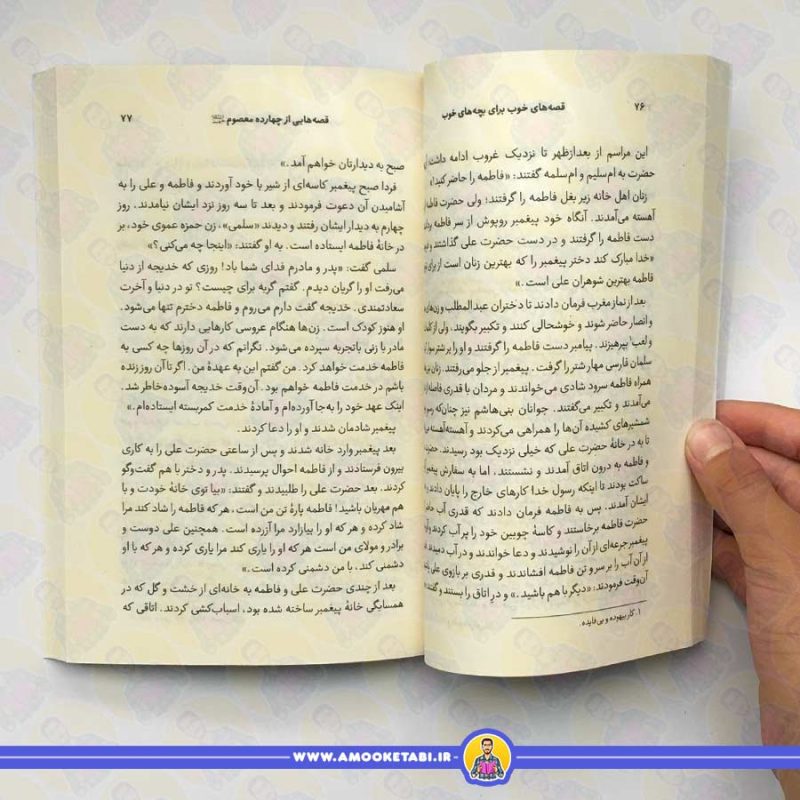 ۷۶
قصه‌های خوب برای بچه‌های خوب
این مراسم از بعدازظهر تا نزدیک غروب ادامه داشت.
حضرت به ام‌سلیم و ام‌سلمه گفتند: «فاطمه را حاضر کنید!»
زنان اهل خانه زیر بغل فاطمه را گرفتند؛ ولی حضرت فاطمه
آهسته می‌آمدند. آنگاه خود پیغمبر روپوش از سر فاطمه
دست فاطمه را گرفتند و در دست حضرت علی گذاشتند و
«خدا مبارک کند دختر پیغمبر را که بهترین زنان است از برای
فاطمه بهترین شوهران علی است.»
بعد از نماز مغرب فرمان دادند تا دختران عبدالمطلب و زن‌های
و انصار حاضر شوند و خوشحالی کنند و تکبیر بگویند. ولی از
و لعب۱ بپرهیزند. پیامبر دست فاطمه را گرفتند و او را بر شتر
سلمان فارسی مهار شتر را گرفت. پیغمبر از جلو می‌رفتند. زنان
همراه فاطمه سرود شادی می‌خواندند و مردان با قدری فاصله
می‌آمدند و تکبیر می‌گفتند. جوانان بنی‌هاشم نیز چنان‌که رسم
شمشیرهای کشیده آن‌ها را همراهی می‌کردند و آهسته‌آهسته
تا به در خانهٔ حضرت علی که خیلی نزدیک بود رسیدند.
و فاطمه به درون اتاق آمدند و نشستند، اما به سفارش پیغمبر
ساکت بودند تا اینکه رسول خدا کارهای خارج را پایان دادند و
ایشان آمدند. پس به فاطمه فرمان دادند که قدری آب
حضرت فاطمه برخاستند و کاسهٔ چوبین خود را پر آب کردند و
پیغمبر جرعه‌ای از آن را نوشیدند و دعا خواندند و در آب دمیدند
از آن آب را بر سر و تن فاطمه افشاندند و قدری بر بازوی علی
آن‌وقت فرمودند: «دیگر با هم باشید.» و درِ اتاق را بستند و گفتند:
۱. کار بیهوده و بی‌فایده.
قصه‌هایی از چهارده معصوم
۷۷
صبح به دیدارتان خواهم آمد.»
فردا صبح پیغمبر کاسه‌ای از شیر با خود آوردند و فاطمه و علی را به
آشامیدن آن دعوت فرمودند و بعد تا سه روز نزد ایشان نیامدند. روز
چهارم به دیدار ایشان رفتند و دیدند «سلمی»، زن حمزه عموی خود، بر
در خانهٔ فاطمه ایستاده است. به او گفتند: «اینجا چه می‌کنی؟»
سلمی گفت: «پدر و مادرم فدای شما باد! روزی که خدیجه از دنیا
می‌رفت او را گریان دیدم. گفتم گریه برای چیست؟ تو در دنیا و آخرت
سعادتمندی. خدیجه گفت دارم می‌روم و فاطمه دخترم تنها می‌شود.
او هنوز کودک است. زن‌ها هنگام عروسی کارهایی دارند که به دست
مادر یا زنی باتجربه سپرده می‌شود. نگرانم که در آن روزها چه کسی به
فاطمه خدمت خواهد کرد. من گفتم این به عهدهٔ من. اگر تا آن روز زنده
باشم در خدمت فاطمه خواهم بود. آن‌وقت خدیجه آسوده‌خاطر شد.
اینک عهد خود را به‌جا آورده‌ام و آمادهٔ خدمت کمربسته ایستاده‌ام.»
پیغمبر شادمان شدند و او را دعا کردند.
بعد پیغمبر وارد خانه شدند و پس از ساعتی حضرت علی را به کاری
بیرون فرستادند و از فاطمه احوال پرسیدند. پدر و دختر با هم گفت‌وگو
کردند. بعد حضرت علی را طلبیدند و گفتند: «بیا توی خانهٔ خودت و با
هم مهربان باشید! فاطمه پارهٔ تن من است، هر که فاطمه را شاد کند مرا
شاد کرده و هر که او را بیازارد مرا آزرده است. همچنین علی دوست و
برادر و مولای من است هر که او را یاری کند مرا یاری کرده و هر که با او
دشمنی کند، با من دشمنی کرده است.»
بعد از چندی حضرت علی و فاطمه به خانه‌ای از خشت و گل که در
همسایگی خانهٔ پیغمبر ساخته شده بود، اسباب‌کشی کردند. اتاقی که
WWW.AMOOKETABI.IR